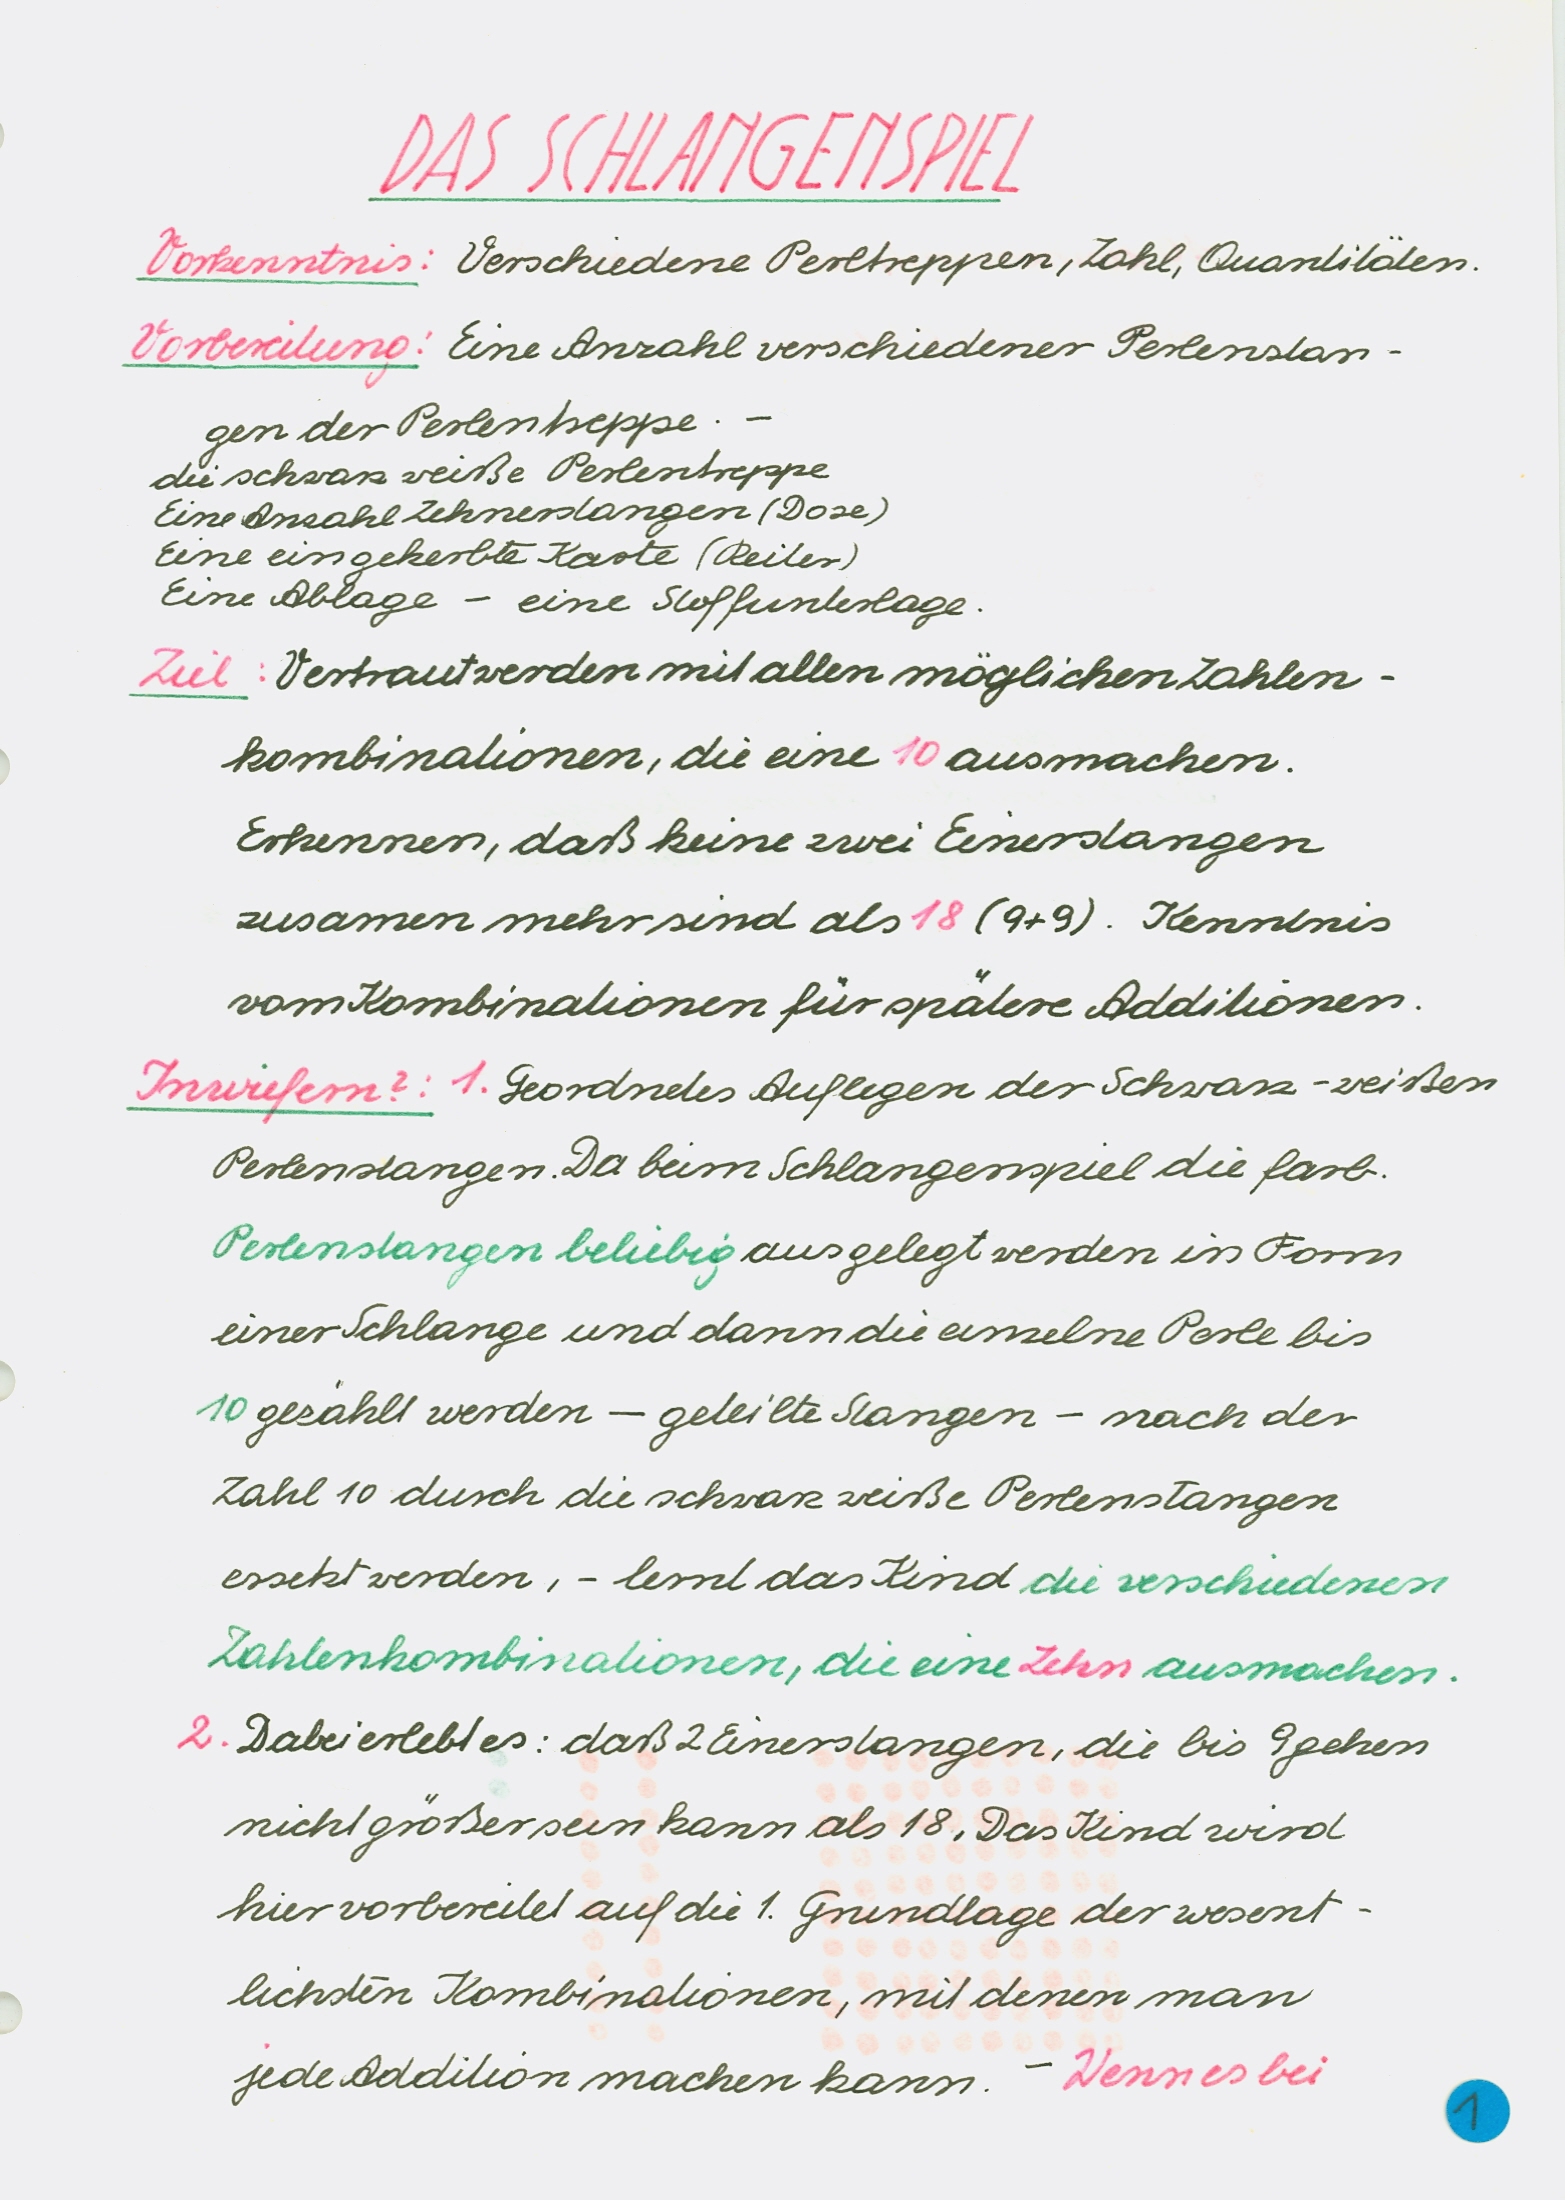 DAS SCHLANGENSPIEL
Vorkenntnis: Verschiedene Perltreppen, Zahl, Quantitäten.
Vorbereitung: Eine Anzahl verschiedener Perlenstan-
gen der Perlentreppe. –
die schwarz weiße Perlentreppe
Eine Anzahl Zehnerstangen (Dose)
Eine eingekerbte Karte (Reiter)
Eine Ablage – eine Stoffunterlage.
Ziel: Vertrautwerden mit allen möglichen Zahlen-
kombinationen, die eine 10 ausmachen.
Erkennen, daß keine zwei Einerstangen
zusamen mehr sind als 18 (9+9). Kenntnis
vom Kombinationen für spätere Additionen.
Inwiefern?: 1. Geordnetes Auflegen der Schwarz-weißen
Perlenstangen. Da beim Schlangenspiel die farb.
Perlenstangen beliebig ausgelegt werden in Form
einer Schlange und dann die einzelne Perle bis
10 gezählt werden – geteilte Stangen – nach der
Zahl 10 durch die schwarz weiße Perlenstangen
ersetzt werden, – lernt das Kind die verschiedenen
Zahlenkombinationen, die eine Zehn ausmachen.
2. Dabei erlebt es: daß 2 Einerstangen, die bis 9 gehen
nicht größer sein kann als 18. Das Kind wird
hier vorbereitet auf die 1. Grundlage der wesent-
lichsten Kombinationen, mit denen man
jede Addition machen kann. – Wenn es bei
1